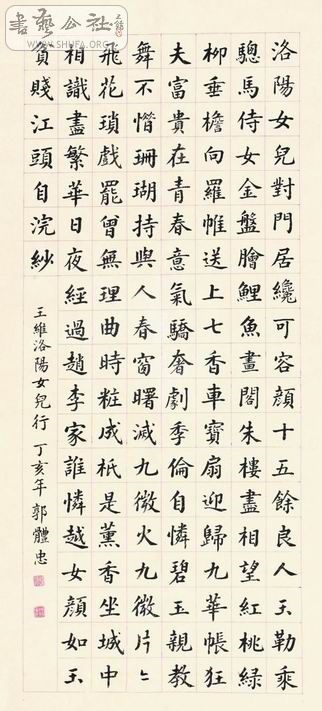 洛陽女兒對門居纔可容顏十五餘良人玉勒乘
驄馬侍女金盤膾鯉魚畫閣朱樓盡相望紅桃綠
柳垂檐向羅帷送上七香車寶扇迎歸九華帳狂
夫富貴在青春意氣驕奢劇季倫自憐碧玉親教
舞不惜珊瑚持與人春窗曙滅九微火九微片〻
飛花瑣戲罷曾無理曲時粧成祇是薰香坐城中
相識盡繁華日夜經過趙李家誰憐越女顏如玉
貧賤江頭自浣紗
王維洛陽女兒行 丁亥年 郭體忠
書藝公社
WWW.SHUFA.ORG